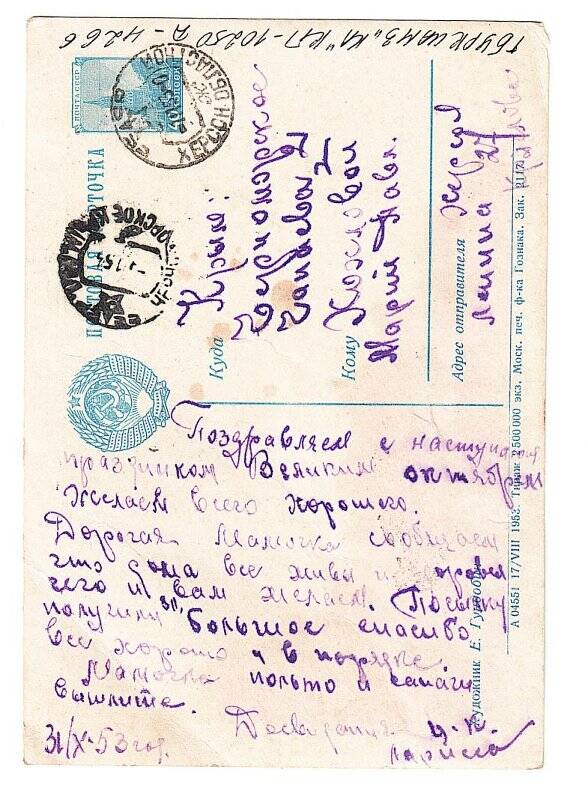 ПОЧТА СССР
ПОЧТОВАЯ КАРТОЧКА
ХЕРСОН ОБЛАСТНОЙ
Куда Крым
Черноморское
Чапаева 2
Кому Козловой
Марии Павл.
Адрес отправителя Херсон
Ленина 27
Поздравляем с наступающим
праздником Великим октябрем
Желаем всего хорошего.
Дорогая Мамочка сообщаем
что дома все живы и здоровы
чего и вам желаем. Посылку
получили 31, большое спасибо
все хорошо и в порядке.
Мамочка польто и сапаги
вышлите.
Досвидания
Лариса
31/X-53 год.
Художник Е. Гундобин
А 04551 17/VIII 1953. Тираж 2 500 000 экз. Моск. печ. ф-ка Гознака. Зак.